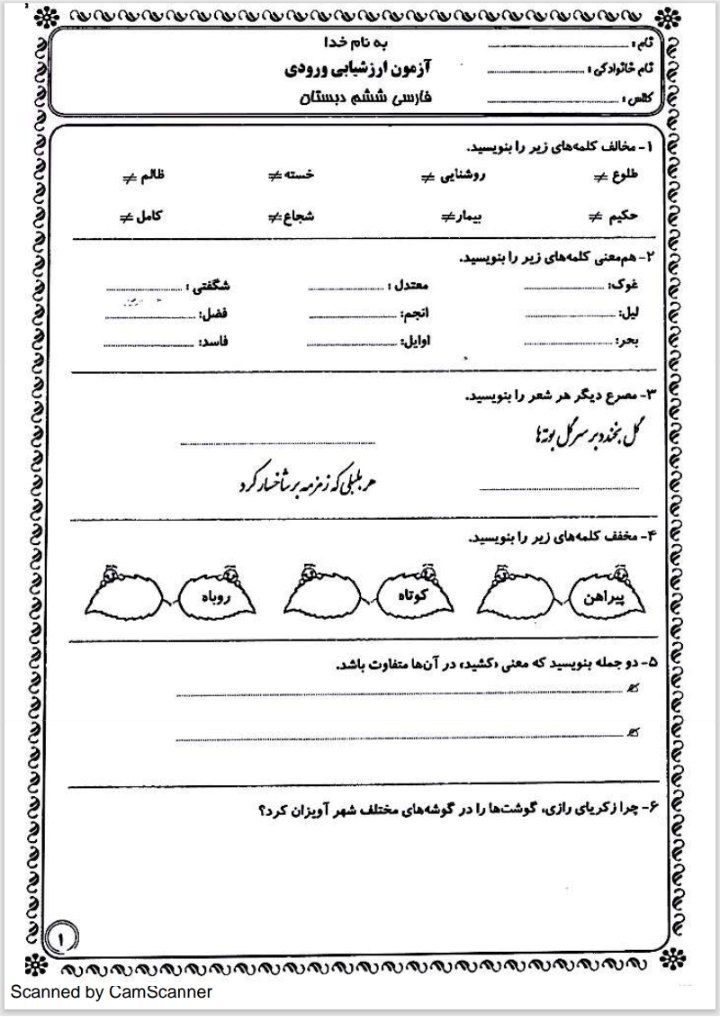 به نام خدا
آزمون ارزشیابی ورودی
فارسی ششم دبستان
نام:
نام خانوادگی:
کلاس:
۱- مخالف کلمه‌های زیر را بنویسید.
طلوع ≠ روشنایی ≠ خسته ≠ ظالم ≠
حکیم ≠ بیمار ≠ شجاع ≠ کامل ≠
۲- هم‌معنی کلمه‌های زیر را بنویسید.
غوک: معتدل: شگفتی:
لیل: انجم: فضل:
بحر: اوایل: فاسد:
۳- مصرع دیگر هر شعر را بنویسید.
گل بخندد بر سر گل بوته‌ها
هر بلبلی که زمزمه بر شاخسار کرد
۴- مخفف کلمه‌های زیر را بنویسید.
پیراهن کوتاه روباه
۵- دو جمله بنویسید که معنی «کشید» در آن‌ها متفاوت باشد.
۶- چرا زکریای رازی، گوشت‌ها را در گوشه‌های مختلف شهر آویزان کرد؟
۱
Scanned by CamScanner